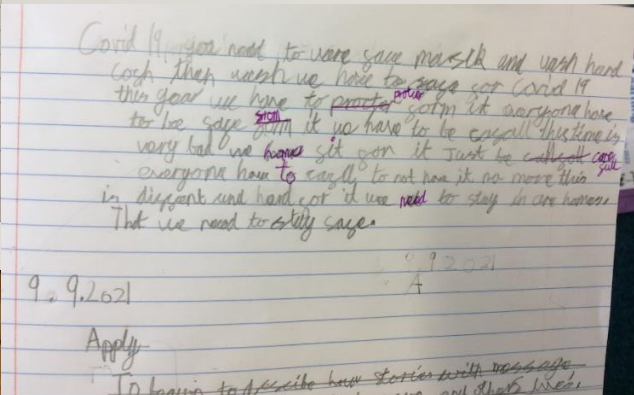 Covid 19, you need to ware save marsck and wash hand
cosh then wersh we have to sage gor Covid 19
this gear we have to procter protier gorm it everyone have
to be sage grom it we have to be cagall this time is
very bad we it gon it Just be care gull
everyone have to cagll to not have it no more this
is diggent und hard gor it we need to stay in are homes.
That we need to stay sage.
9 2021
A
9.9.2021
Apply
To begin to describe how stories with message
and thers lives.